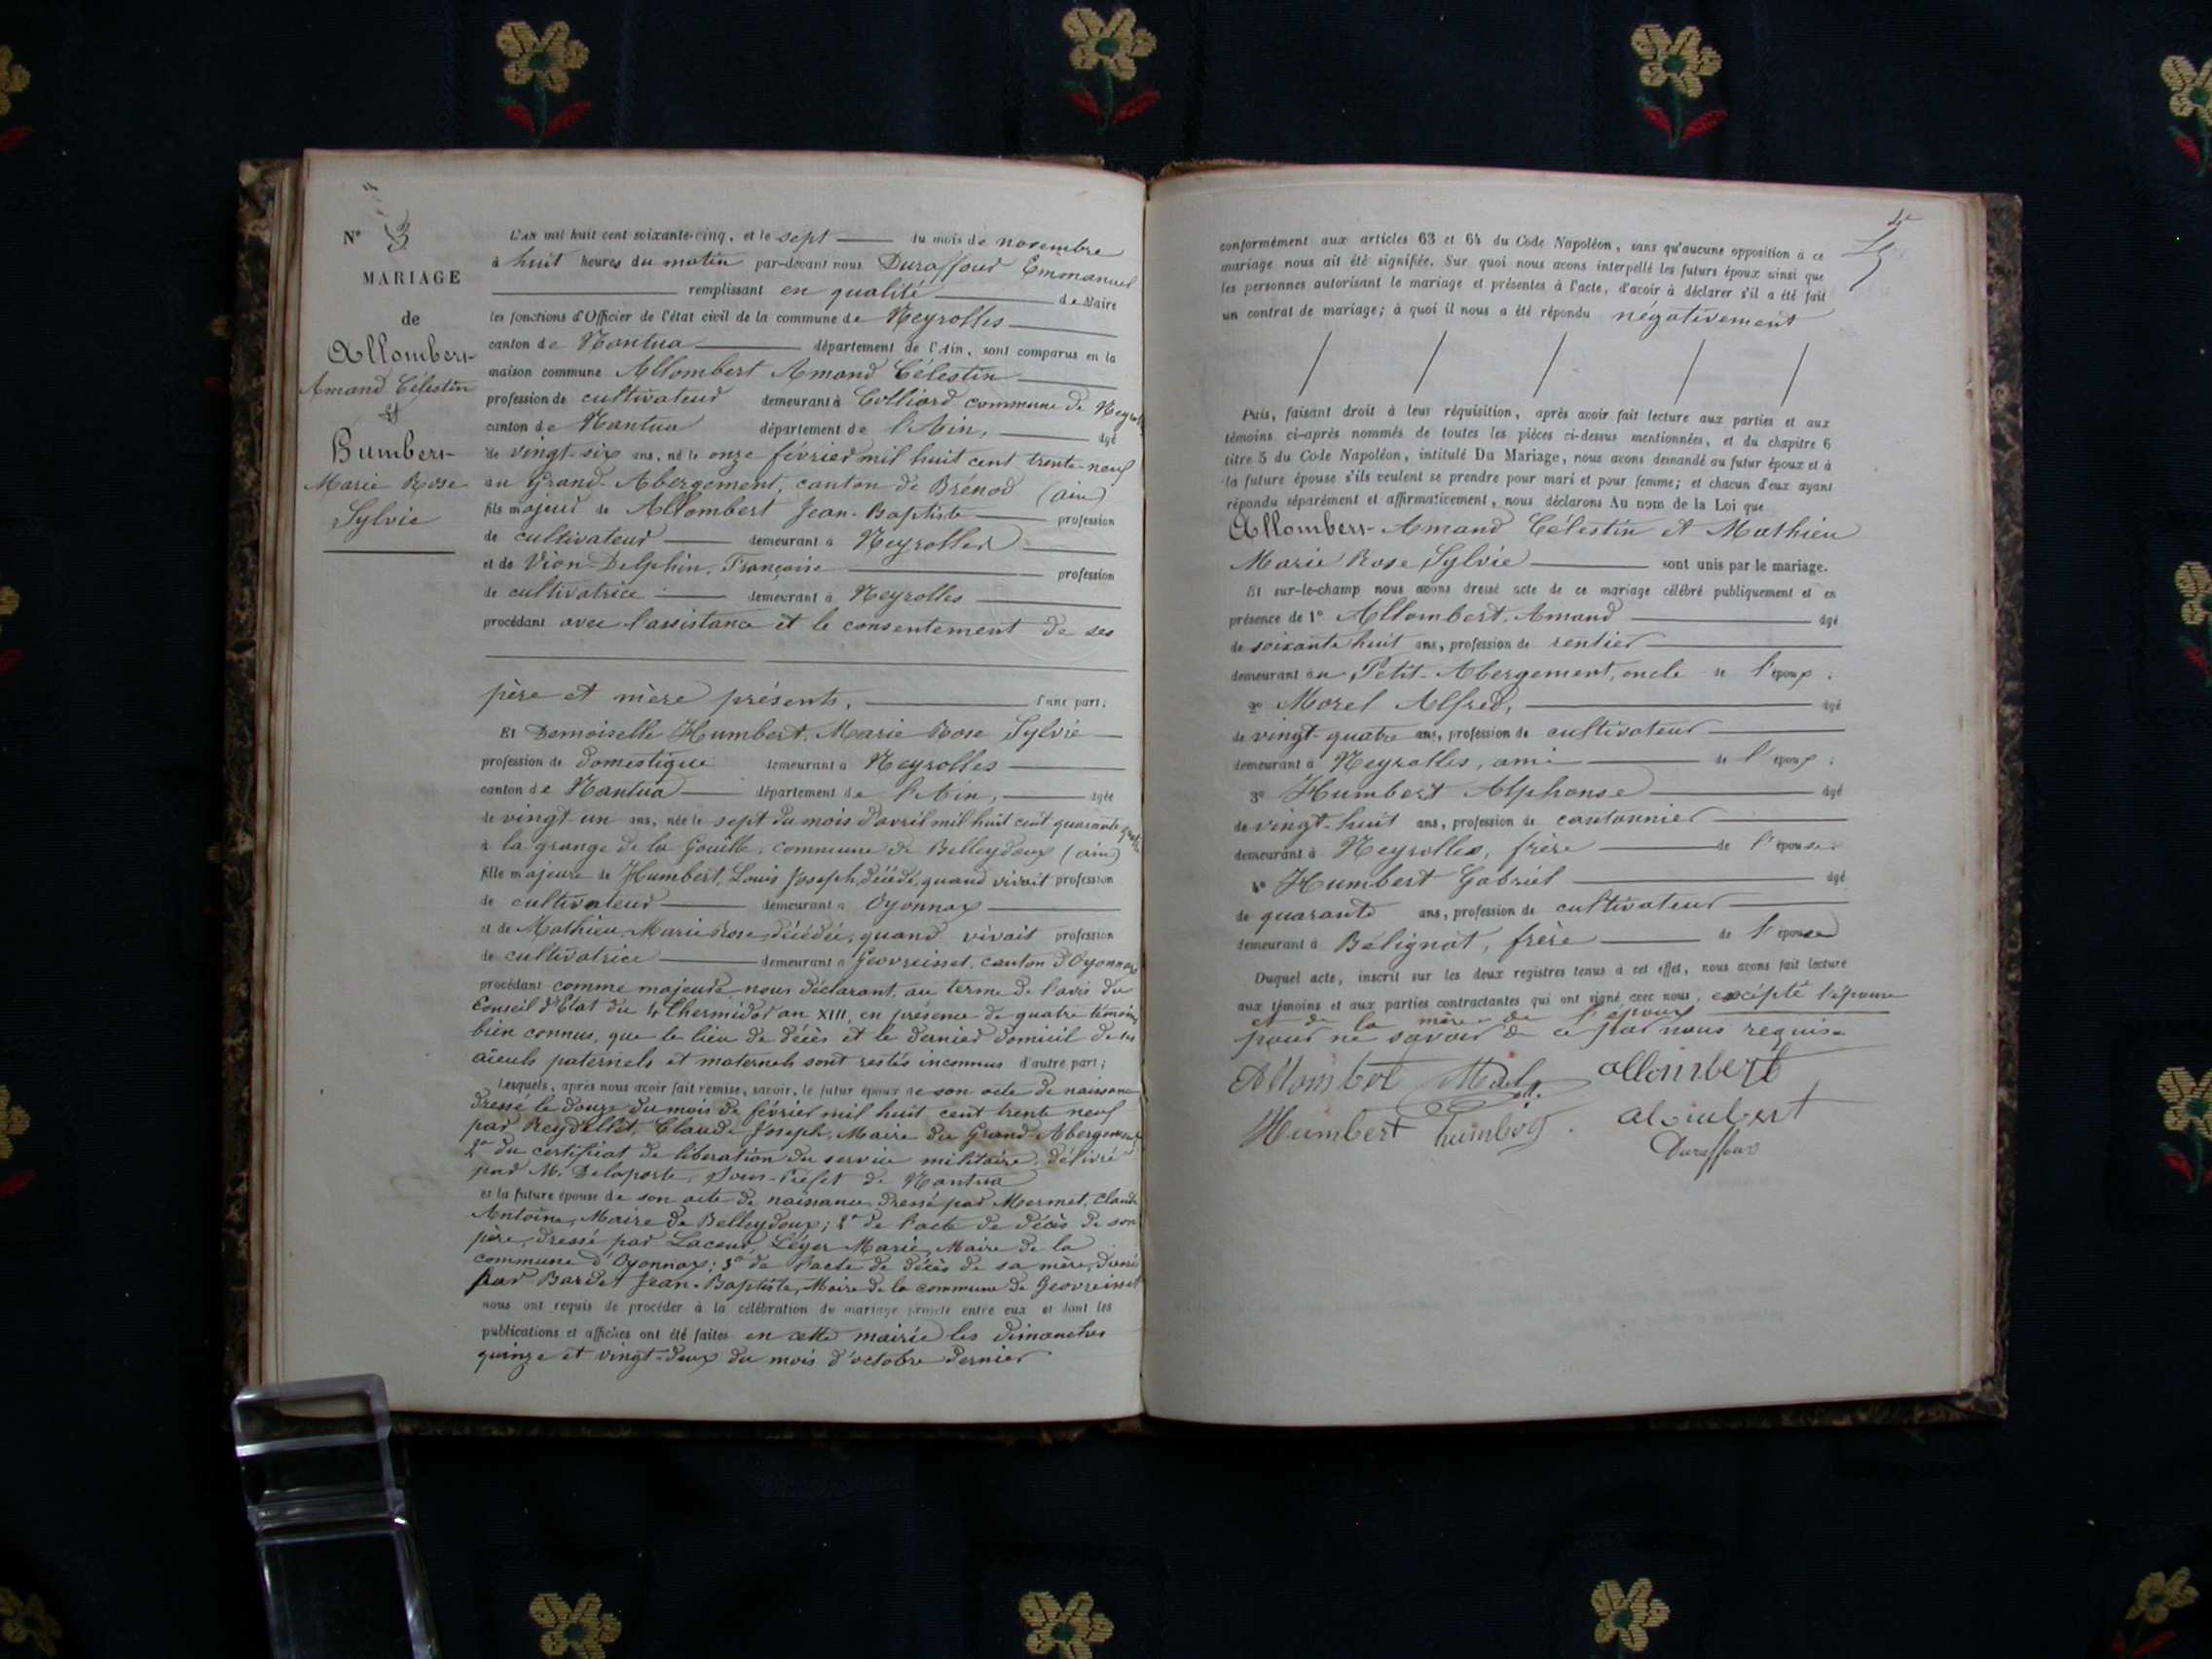 N° 3
MARIAGE
de
Allombert
Amand Célestin
et
Humbert
Marie Rose
Sylvie
L'AN mil huit cent soixante-cinq, et le sept du mois de novembre
à huit heures du matin par-devant nous Duraffour Emmanuel
remplissant en qualité de Maire
les fonctions d'Officier de l'état civil de la commune de Neyrolles
canton de Nantua département de l'Ain, sont comparus en la
maison commune Allombert Amand Célestin
profession de cultivateur demeurant à Colliard commune de Neyrolles
canton de Nantua département de l'Ain, âgé
de vingt-six ans, né le onze février mil huit cent trente-neuf
au Grand-Abergement, canton de Brénod (ain)
fils majeur de Allombert Jean-Baptiste profession
de cultivateur demeurant à Neyrolles
et de Vion-Delphin, Françoise profession
de cultivatrice demeurant à Neyrolles
procédant avec l'assistance et le consentement de ses
père et mère présents, d'une part;
Et Demoiselle Humbert, Marie Rose Sylvie
profession de domestique demeurant à Neyrolles
canton de Nantua département de l'Ain, âgée
de vingt-un ans, née le sept du mois d'avril mil huit cent quarante quatre
à la grange de la Gouille, commune de Belleydoux (ain)
fille majeure de Humbert, Louis Joseph, décédé, quand vivait profession
de cultivateur demeurant à Oyonnax
et de Mathieu, Marie Rose, décédée, quand vivait profession
de cultivatrice demeurant à Geovreisset, canton d'Oyonnax
procédant comme majeure nous déclarant, au terme de l'avis du
Conseil d'Etat du 4 Thermidor an XIII, en présence de quatre témoins
bien connus, que le lieu de décès et le dernier domicil de ses
aïeuls paternels et maternels sont restés inconnus d'autre part;
Lesquels, après nous avoir fait remise, savoir, le futur époux de son acte de naissance
dressé le douze du mois de février mil huit cent trente neuf
par Reydellet, Claude Joseph, Maire du Grand-Abergement
2° du certificat de libération du service militaire, délivré
par M. Delaporte, Sous-Préfet de Nantua
et la future épouse de son acte de naissance, dressé par Mermet, Claude
Antoine, Maire de Belleydoux; 2° de l'acte de décès de son
père, dressé par Lacour, Léger Marie, Maire de la
commune d'Oyonnax; 3° de l'acte de décès de sa mère, dressé
par Bardet Jean-Baptiste, Maire de la commune de Geovreisset
nous ont requis de procéder à la célébration du mariage projeté entre eux et dont les
publications et affiches ont été faites en cette mairie les dimanches
quinze et vingt-deux du mois d'octobre dernier
conformément aux articles 63 et 64 du Code Napoléon, sans qu'aucune opposition à ce
mariage nous ait été signifiée. Sur quoi nous avons interpellé les futurs époux ainsi que
les personnes autorisant le mariage et présentes à l'acte, d'avoir à déclarer s'il a été fait
un contrat de mariage; à quoi il nous a été répondu négativement
Puis, faisant droit à leur réquisition, après avoir fait lecture aux parties et aux
témoins ci-après nommés de toutes les pièces ci-dessus mentionnées, et du chapitre 6
titre 5 du Code Napoléon, intitulé Du Mariage, nous avons demandé au futur époux et à
la future épouse s'ils veulent se prendre pour mari et pour femme; et chacun d'eux ayant
répondu séparément et affirmativement, nous déclarons Au nom de la Loi que
Allombert Amand Célestin et Mathieu
Marie Rose Sylvie sont unis par le mariage.
Et sur-le-champ nous avons dressé acte de ce mariage célébré publiquement et en
présence de 1° Allombert, Amand âgé
de soixante huit ans, profession de rentier
demeurant au Petit-Abergement, oncle de l'époux;
2° Morel Alfred, âgé
de vingt-quatre ans, profession de cultivateur
demeurant à Neyrolles, ami de l'époux;
3° Humbert Alphonse âgé
de vingt-huit ans, profession de cantonnier
demeurant à Neyrolles, frère de l'épouse
4° Humbert Gabriel âgé
de quarante ans, profession de cultivateur
demeurant à Bélignat, frère de l'épouse
Duquel acte, inscrit sur les deux registres tenus à cet effet, nous avons fait lecture
aux témoins et aux parties contractantes qui ont signé avec nous, excepté l'épouse
et de la mère de l'époux
pour ne savoir de ce par nous requise
Allombert Morel allombert
Humbert humbert alombert
Duraffour